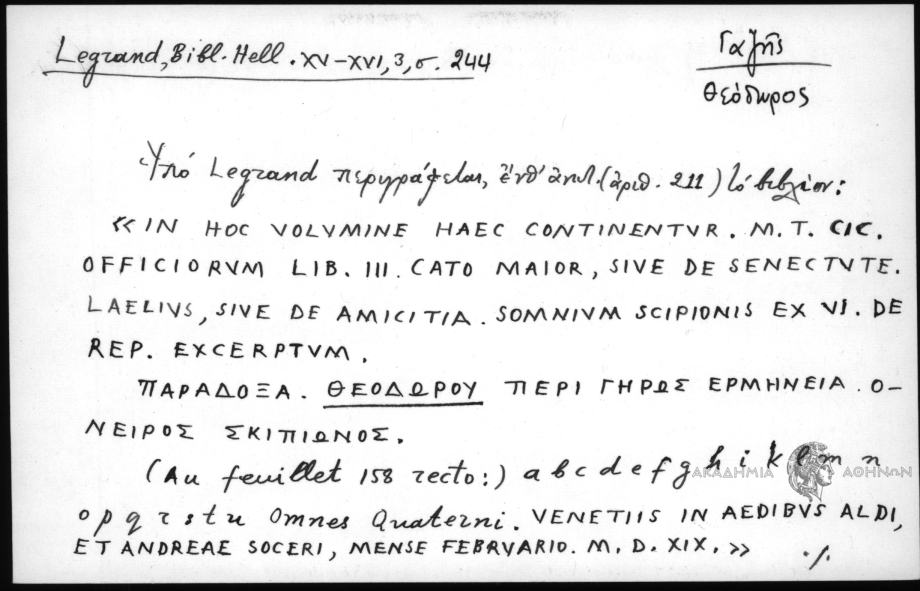 Legrand, Bibl. Hell. XV-XVI, 3, σ. 244
Γαζῆς
Θεόδωρος
Ὑπό Legrand περιγράφεται, ἐνθ' ἀνωτ. (ἀριθ. 211) τό βιβλίον:
«IN HOC VOLVMINE HAEC CONTINENTVR. M. T. CIC.
OFFICIORVM LIB. III. CATO MAIOR, SIVE DE SENECTVTE.
LAELIVS, SIVE DE AMICITIA. SOMNIVM SCIPIONIS EX VI. DE
REP. EXCERPTVM.
ΠΑΡΑΔΟΞΑ. ΘΕΟΔΩΡΟΥ ΠΕΡΙ ΓΗΡΩΣ ΕΡΜΗΝΕΙΑ. Ο-
ΝΕΙΡΟΣ ΣΚΙΠΙΩΝΟΣ.
(Au feuillet 158 recto:) a b c d e f g h i k l m n
ΑΚΑΔΗΜΙΑ ΑΘΗΝΩΝ
o p q r s t u Omnes Quaterni. VENETIIS IN AEDIBVS ALDI,
ET ANDREAE SOCERI, MENSE FEBRVARIO. M. D. XIX.»
./.